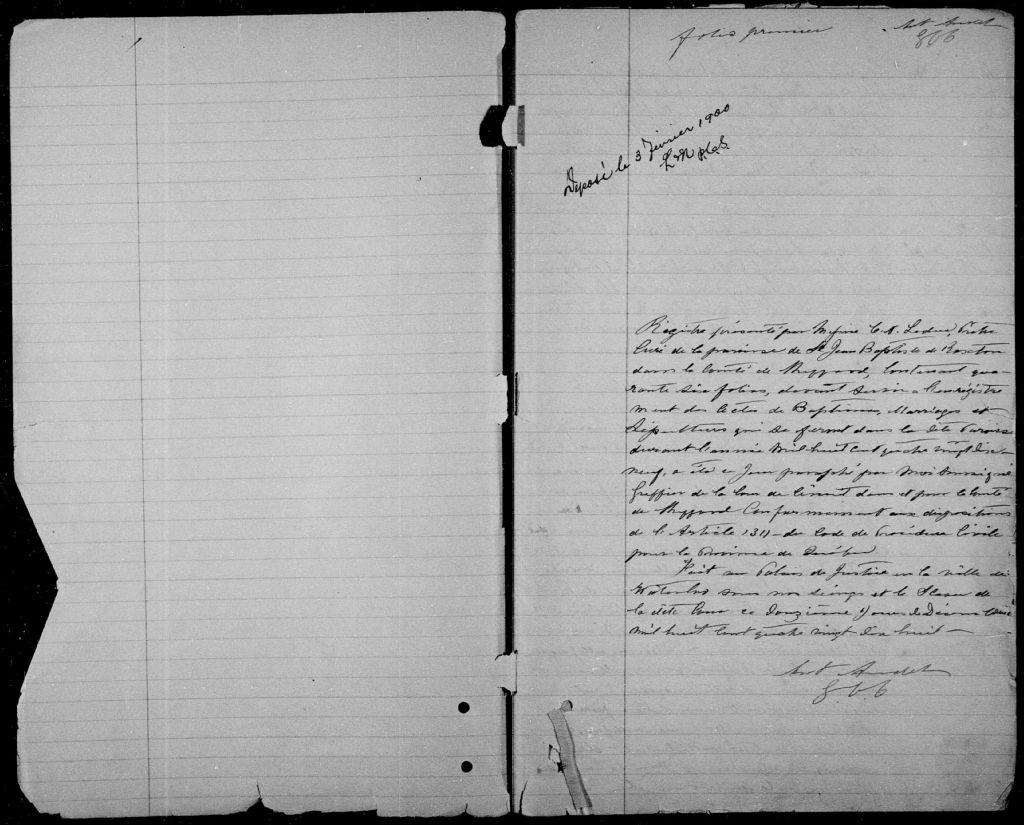 folio premier
Ant Audet
G C C
Déposé le 3 Février 1900
Registre présenté par Messire C. A. Leduc, Prêtre
Curé de la paroisse de St Jean Baptiste de Roxton
dans le Comté de Shefford, Contenant qua-
rante six folios, devant servir a l'enrégistre
ment des Actes de Baptêmes, Marriages et
Sépultures qui se feront dans la dite Paroisse
durant l'année Mil huit cent quatre vingt dix
neuf, a été ce Jour paraphé par Moi Soussigné
Greffier de la Cour de Circuit dans et pour le Comté
de Shefford Conformement aux dispositions
de l'Article 1311 du Code de Procédure Civile
pour la Province de Québec
Fait au Palais de Justice en la ville de
Waterloo sous nos seings et le Sceau de
la dite Cour ce Douzième Jour de Décembre
Mil huit Cent quatre vingt dix huit —
Ant Audet
G. C. C